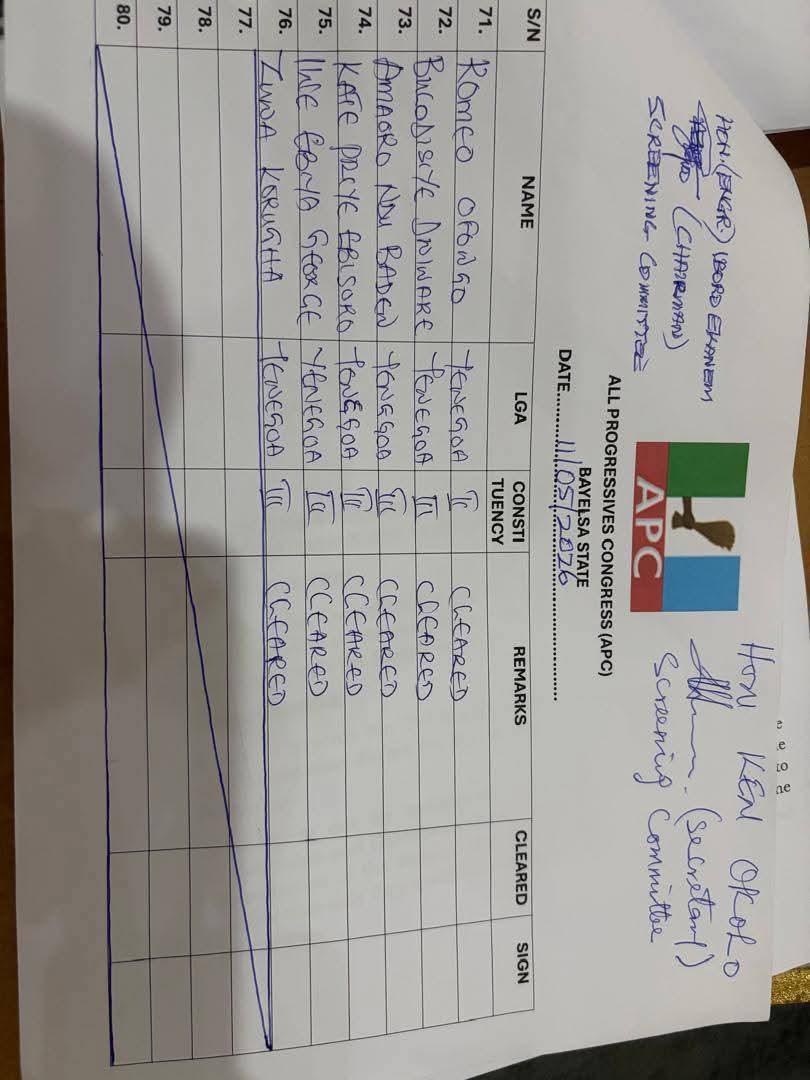 HON. (ENGR.) OBORO EKANEM
(CHAIRMAN)
SCREENING COMMITTEE
APC
HON KEN OKOLO
(Secretary)
Screening Committee
ALL PROGRESSIVES CONGRESS (APC)
BAYELSA STATE
DATE 11/05/2026
S/N NAME LGA CONSTITUENCY REMARKS CLEARED SIGN
71. ROMEO OFONGO YENEGOA III CLEARED
72. YENEGOA III CLEARED
73. AMAORO NDU BADEN YENGGOA III CLEARED
74. KATE PREYE EBISORO YENEGOA III CLEARED
75. EBIYA GEORGE YENEGOA III CLEARED
76. ZUWA KORUGHA YENEGOA III CLEARED
77.
78.
79.
80.